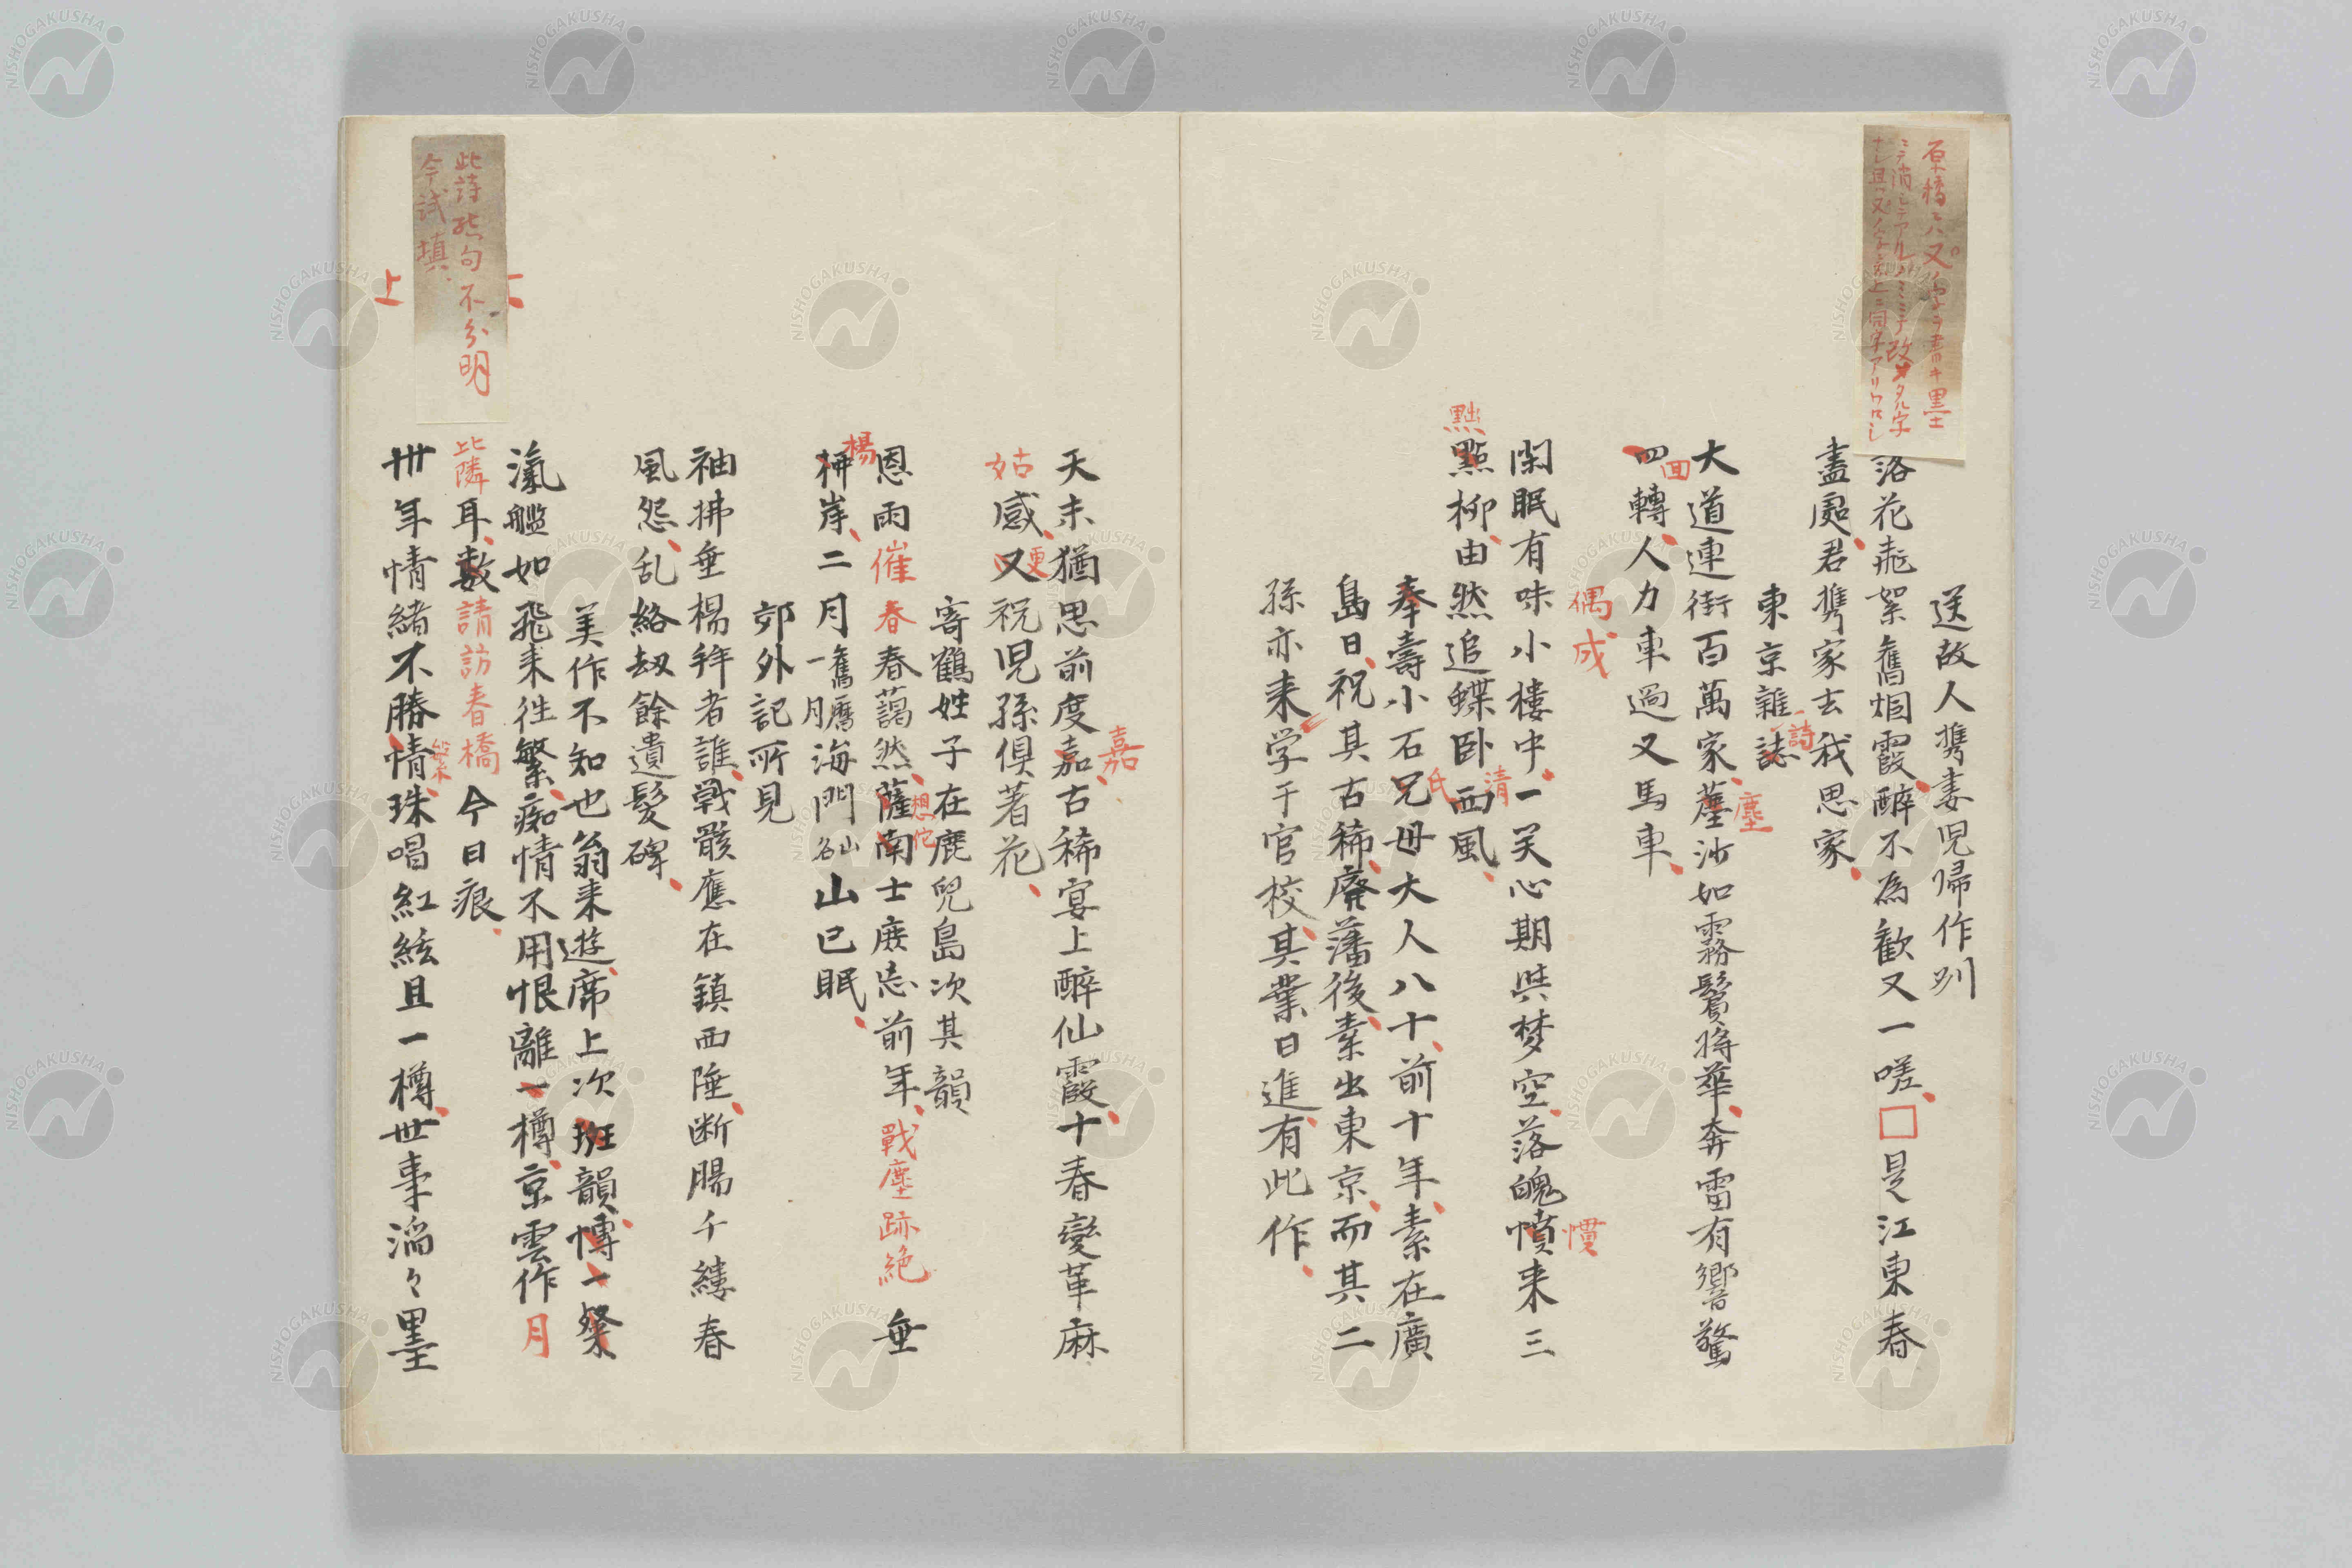 送故人携妻児帰作別
落花飛絮舊烟霞醉不為歓又一嗟□是江東春
盡處君携家去我思家
東京雜誌
詩
大道連街百萬家塵沙如霧鬢將華奔雷有響驚
塵
四轉人力車過又馬車
回
偶成
閑眠有味小樓中一笑心期與梦空落魄憤来三
慣
點柳由然追蝶卧西風
黜
清
奉壽小石兄母大人八十前十年素在廣
氏
島日祝其古稀廃藩後素出東京而其二
孫亦来学于官校其業日進有此作
天未猶思前度嘉古稀宴上醉仙霞十春變革麻
嘉
姑感又祝児孫俱著花
更
寄鶴姓子在鹿兒島次其韻
恩雨催春春藹然薩南士庶忘前年戰塵跡絶垂
想佗
栁岸二月舊臈海門山已眠
楊
郊外記所見
袖拂垂楊拜者誰戰骸應在鎮西陲断腸千縷春
風怨乱絡劫餘遺髪碑
美作不知也翁来遊席上次斑韻博一粲
滊艦如飛来往繁痴情不用恨離樽京雲作月
比隣耳數請訪春橋今日痕
卅年情緒不勝情珠唱紅絃且一樽世事滔々墨
繁
上
此詩起句不分明
今試填
原稿ニハ又字ヲ書キ墨
ニテ消シテアルノミニテ改メタル字
ナシ且又ノ字ハ上ニ同字アリ